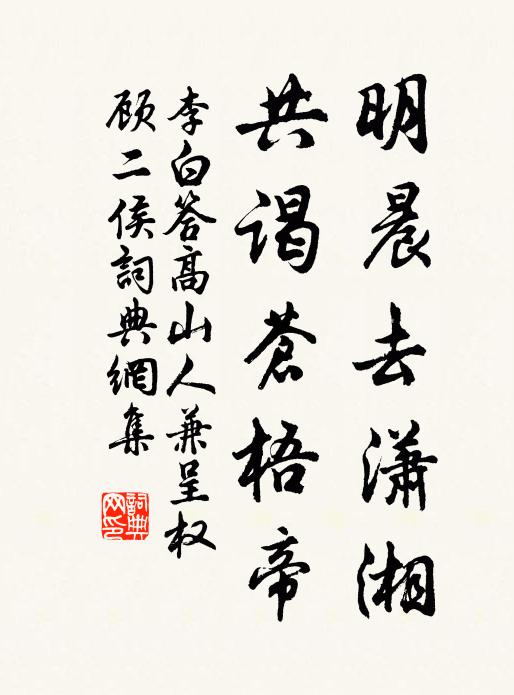 明晨去瀟湘
共谒蒼梧帝
李白答高山人兼呈权
顾二侯詞典網集
詞典網印